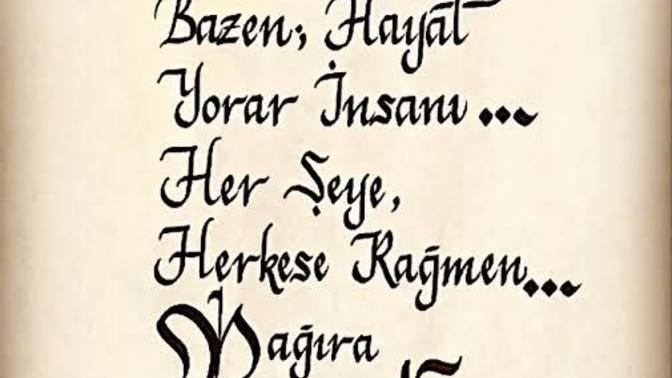 Bazen; Hayat
Yorar İnsanı...
Her Şeye,
Herkese Rağmen...
Bağıra